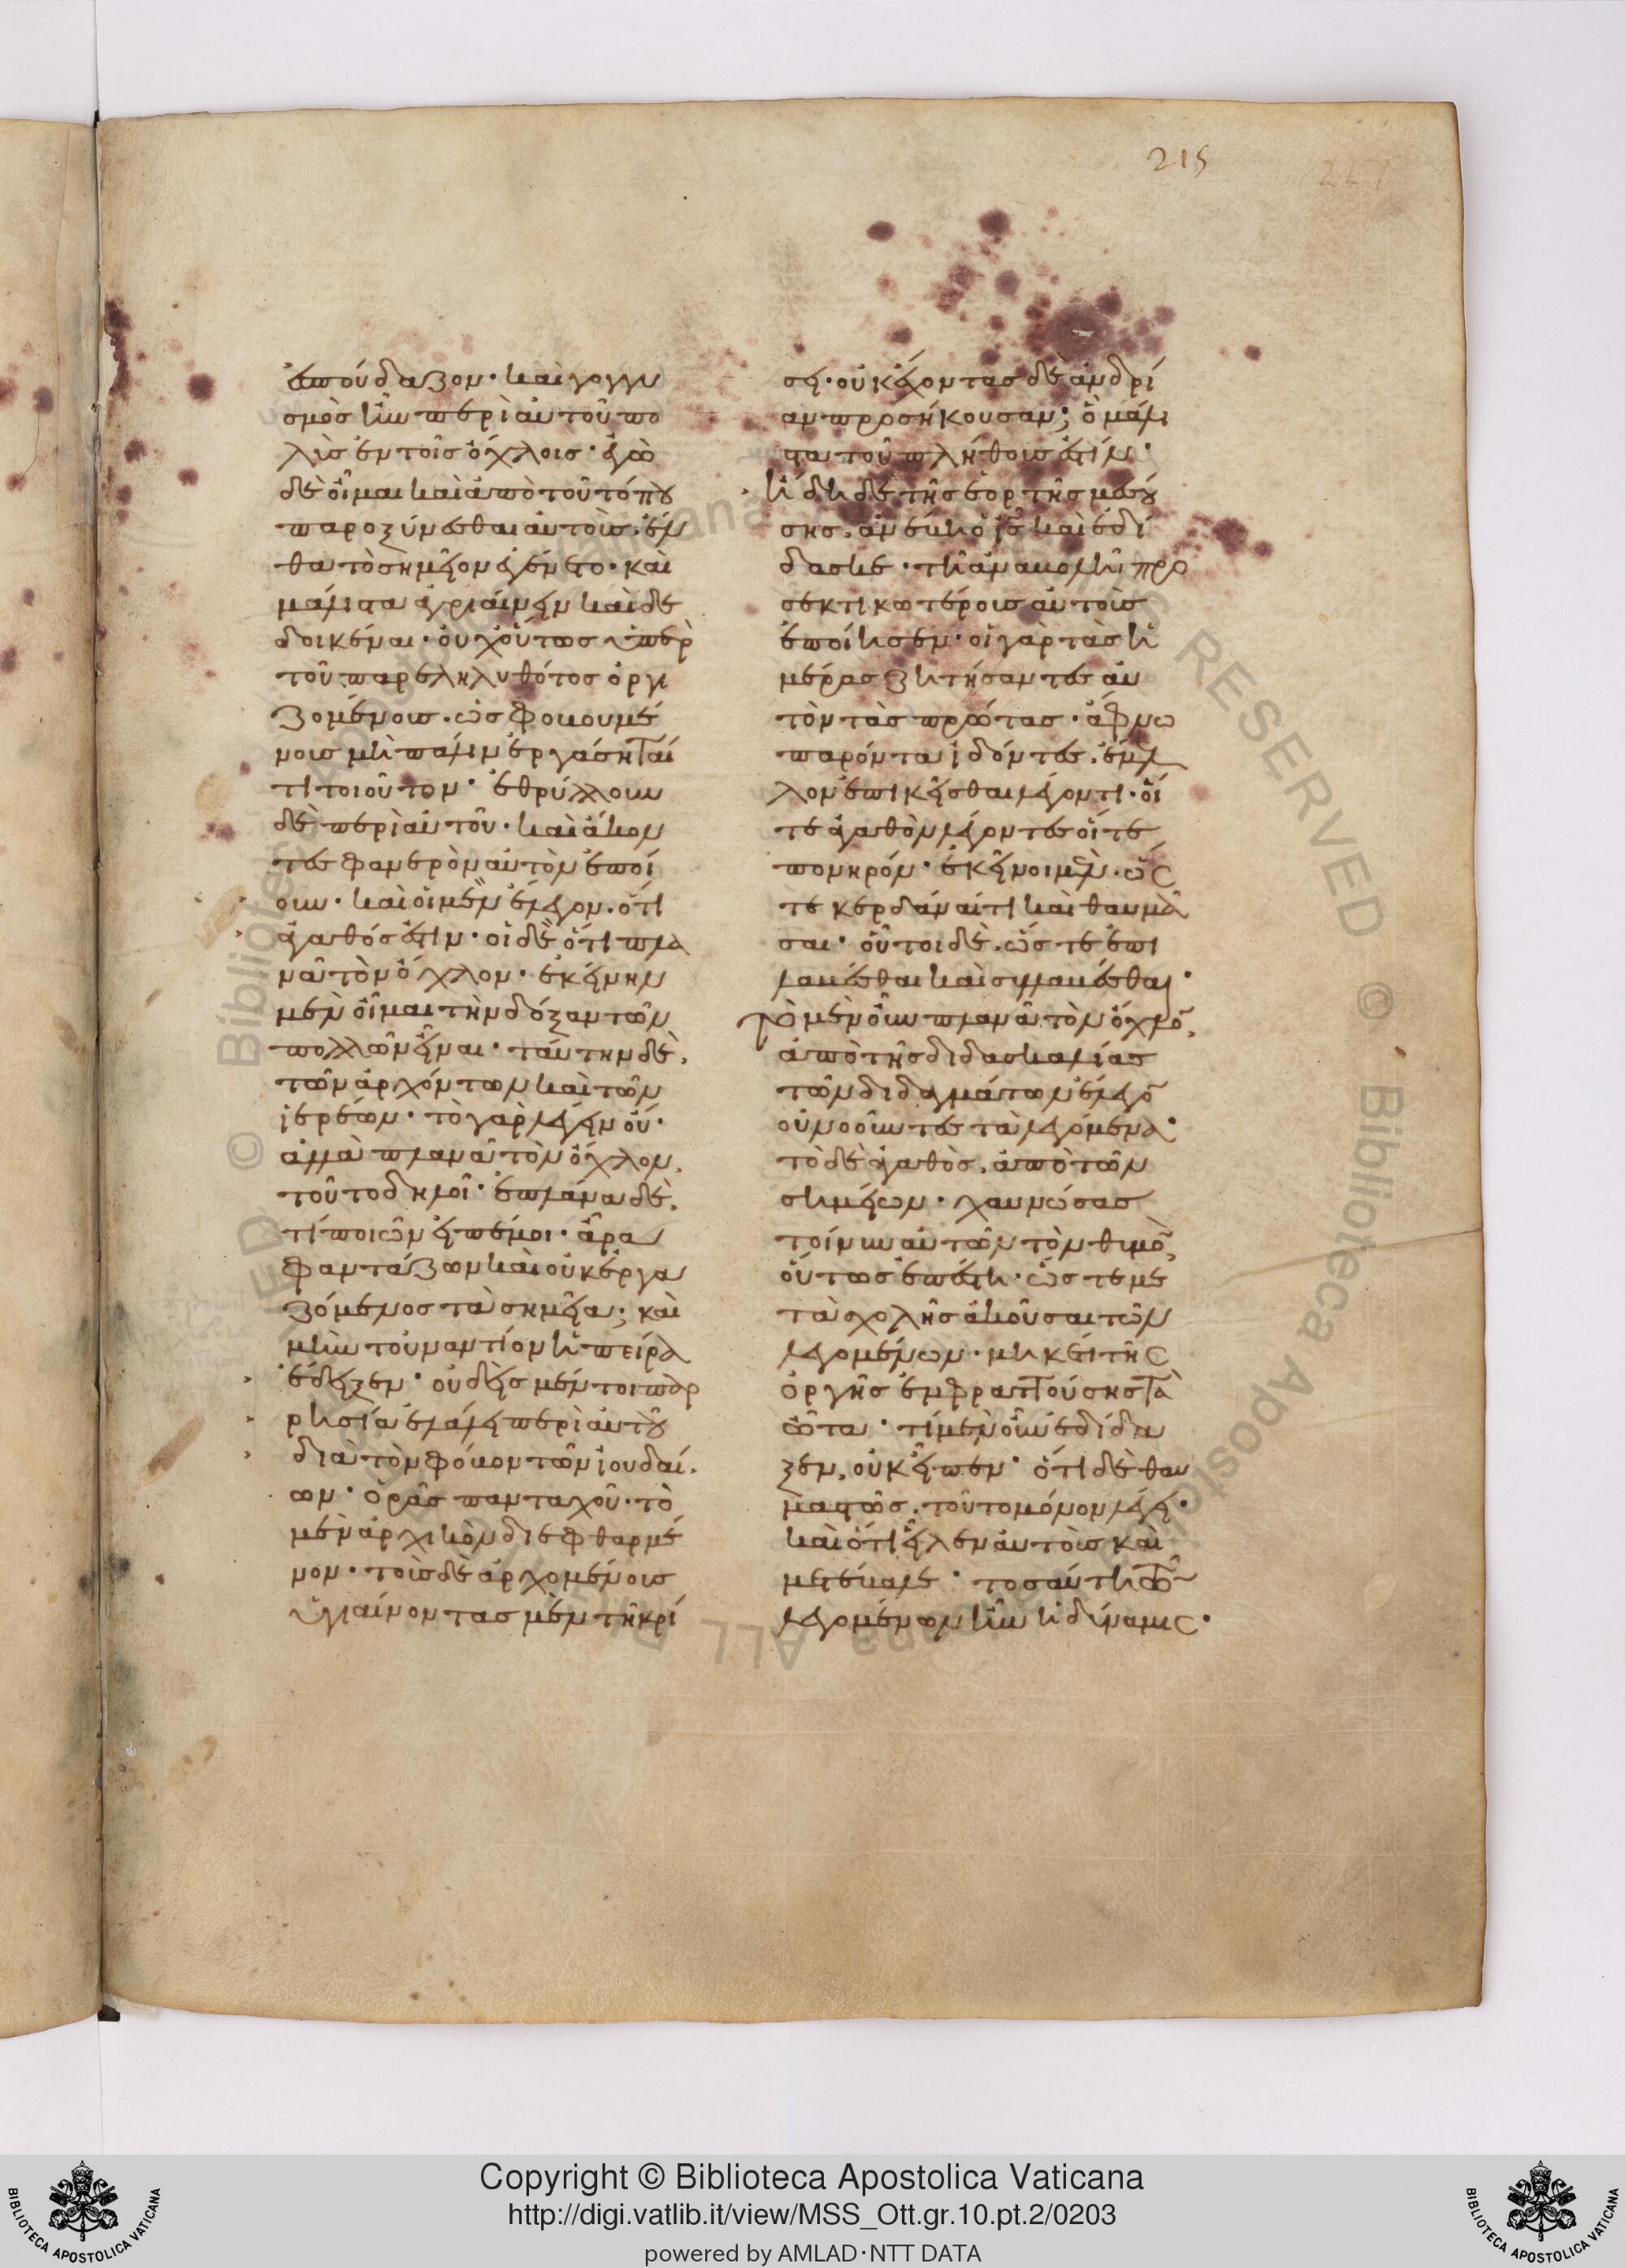 215
227
ἐσπούδαζον· καὶ γογγυ
σμὸς ἦν περὶ αὐτοῦ πο
λὺς ἐν τοῖς ὄχλοις· ἐγὼ
δὲ οἶμαι καὶ ἀπὸ τοῦ τόπου
παροξύνεσθαι αὐτοὺς. ἔν
θα τὸ σημεῖον ἐγένετο· καὶ
μάλιστα ἀγριαίνειν καὶ δε
δοικέναι· οὐχ οὕτως ὑπὲρ
τοῦ παρεληλυθότος ὀργι
ζομένοις. ὡς φοβουμέ
νοις μὴ πάλιν ἐργάσηταί
τι τοιοῦτον· ἐθρύλλουν
δὲ περὶ αὐτοῦ· καὶ ἄκον
τες φανερὸν αὐτὸν ἐποί
ουν· καὶ οἱ μὲν ἔλεγον. ὅτι
ἀγαθός ἐστιν· οἱ δὲ ὅτι πλα
νᾶ τὸν ὄχλον· ἐκείνην
μὲν οἶμαι τὴν δόξαν τῶν
πολλῶν εἶναι· ταύτην δὲ,
τῶν ἀρχόντων καὶ τῶν
ἱερέων· τὸ γὰρ λέγειν οὔ·
ἀλλὰ πλανᾶ τὸν ὄχλον,
τοῦτο δηλοῖ· ἐπλάνα δὲ,
τί ποιῶν εἰπέ μοι· ἆρα
φαντάζων καὶ οὐκ ἐργα
ζόμενος τὰ σημεῖα; καὶ
μὴν τοὐναντίον ἡ πεῖρα
ἔδειξεν· οὐδεὶς μέντοι παρ
ρησία ἐλάλει περὶ αὐτοῦ
διὰ τὸν φόβον τῶν ἰουδαί
ων· ὁρᾶς πανταχοῦ· τὸ
μὲν ἀρχικὸν διεφθαρμέ
νον· τοὺς δὲ ἀρχομένους
ὑγιαίνοντας μὲν τῆ κρί
σει· οὐκ ἔχοντας δὲ ἀνδρί
αν προσήκουσαν; ὃ μάλι
στα τοῦ πλήθους ἐστίν·
ἤδη δὲ τῆς ἑορτῆς μεσού
σης. ἀνέβη ὁ ις καὶ ἐδί
δασκε· τῆ ἀναβολῆ προ
σεκτικωτέρους αὐτοὺς
ἐποίησεν· οἱ γὰρ τὰς ἡ
μέρας ζητήσαντες αὐ
τὸν τὰς πρώτας· ἄφνω
παρόντα ἰδόντες. ἔμελ
λον ἐπικεῖσθαι λέγοντι· οἵ
τε ἀγαθὸν λέγοντες οἵ τε
πονηρόν· ἐκεῖνοι μὲν. ὥς
τε κερδᾶναί τι καὶ θαυμά
σαι· οὗτοι δὲ. ὥστε ἐπι
λαβέσθαι καὶ συλλαβέσθαι·
τὸ μὲν οὖν πλανᾶ τὸν ὄχλον,
ἀπὸ τῆς διδασκαλίας
τῶν διδαγμάτων ἔλεγον
οὐ νοοῦντες τὰ λεγόμενα·
τὸ δὲ ἀγαθὸς. ἀπὸ τῶν
σημείων· χαυνώσας
τοίνυν αὐτῶν τὸν θυμὸν,
οὕτως ἐπέστη· ὥστε με
τὰ σχολῆς ἀκοῦσαι τῶν
λεγομένων· μηκέτι τῆς
ὀργῆς ἐμφραττούσης τὰ
ὦτα· τί μὲν οὖν ἐδίδα
ξεν. οὐκ εἶπεν· ὅτι δὲ θαυ
μαστῶς. τοῦτο μόνον λέγει·
καὶ ὅτι εἷλεν αὐτοὺς καὶ
μετέβαλε· τοσαύτη τῶν
λεγομένων ἦν ἡ δύναμις·
Copyright © Biblioteca Apostolica Vaticana
http://digi.vatlib.it/view/MSS_Ott.gr.10.pt.2/0203
powered by AMLAD·NTT DATA